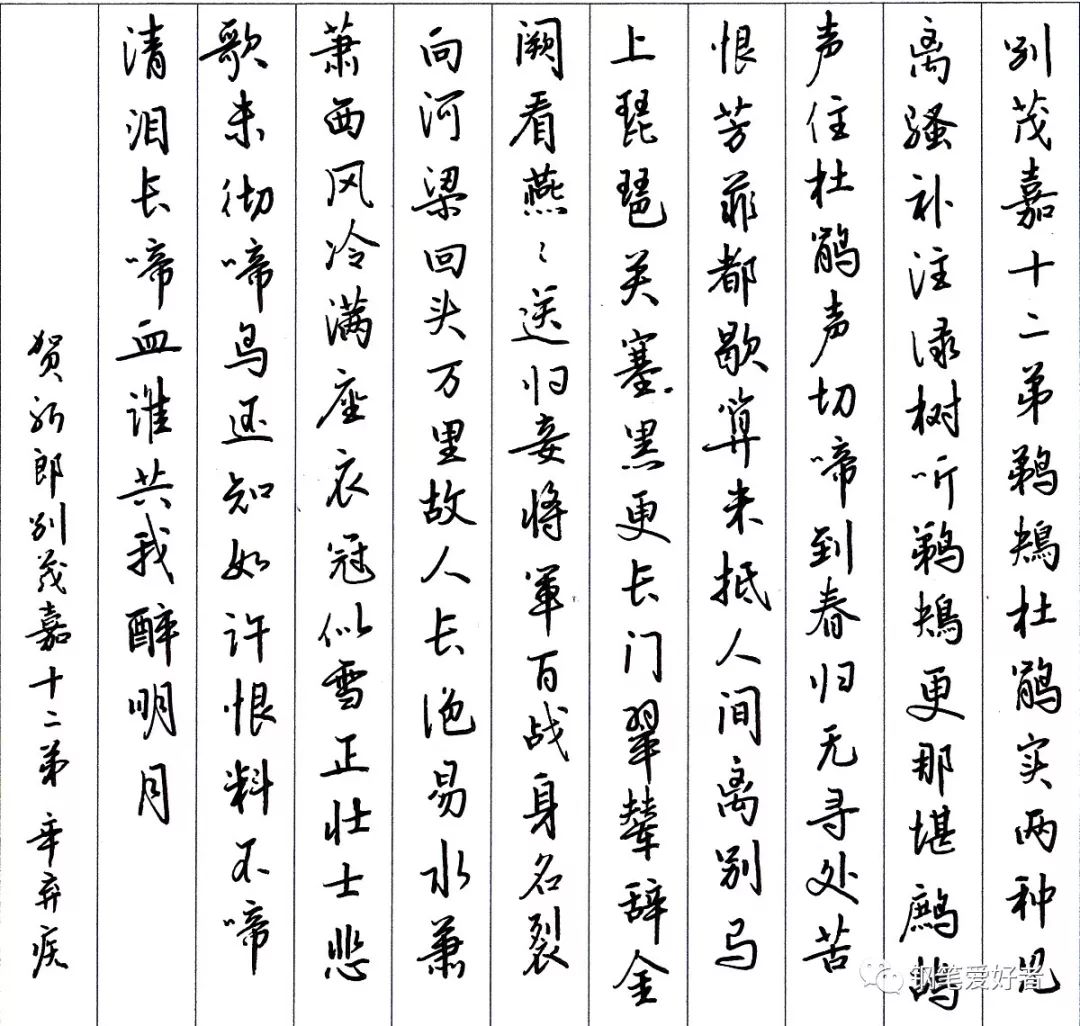 别茂嘉十二弟鹈鴂杜鹃实两种见
离骚补注渌树听鹈鴂更那堪鹧鸪
声住杜鹃声切啼到春归无寻处苦
恨芳菲都歇算来抵人间离别马
上琵琶关塞黑更长门翠辇辞金
阙看燕〻送归妾将军百战身名裂
向河梁回头万里故人长绝易水萧
萧西风冷满座衣冠似雪正壮士悲
歌未彻啼鸟还知如许恨料不啼
清泪长啼血谁共我醉明月
贺新郎别茂嘉十二弟 辛弃疾
钢笔爱好者